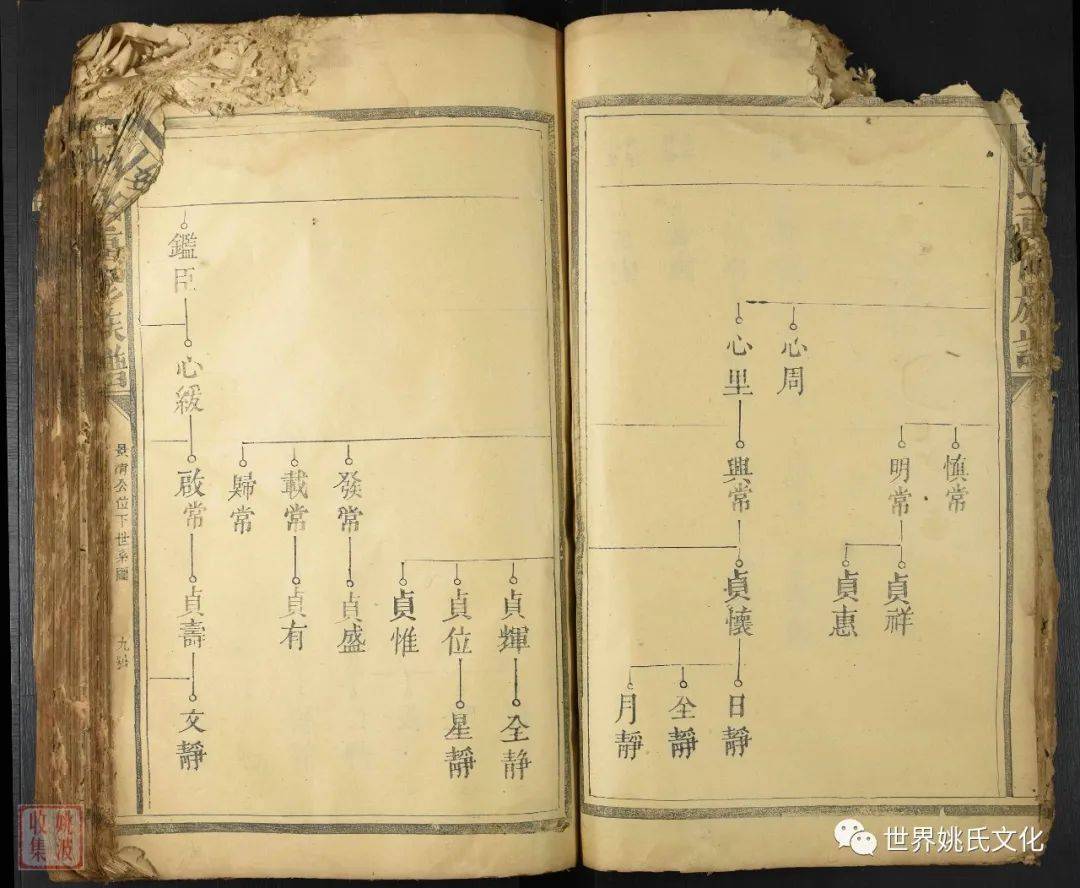 心周
心里
慎常
明常
興常
貞祥
貞惠
貞懷
日靜
全靜
月靜
發常
載常
歸常
貞輝
貞位
貞惟
貞盛
貞有
全静
星靜
鑑臣
心緩
啟常
貞壽
文靜
族譜
景清公位下世系圖
姚波
收集
世界姚氏文化